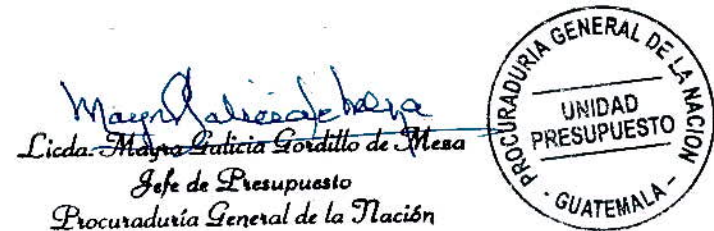 Mayra Galicia de Meza
Licda. Mayra Galicia Gordillo de Mesa
Jefe de Presupuesto
Procuraduría General de la Nación
PROCURADURIA GENERAL DE LA NACION
UNIDAD
PRESUPUESTO
- GUATEMALA -